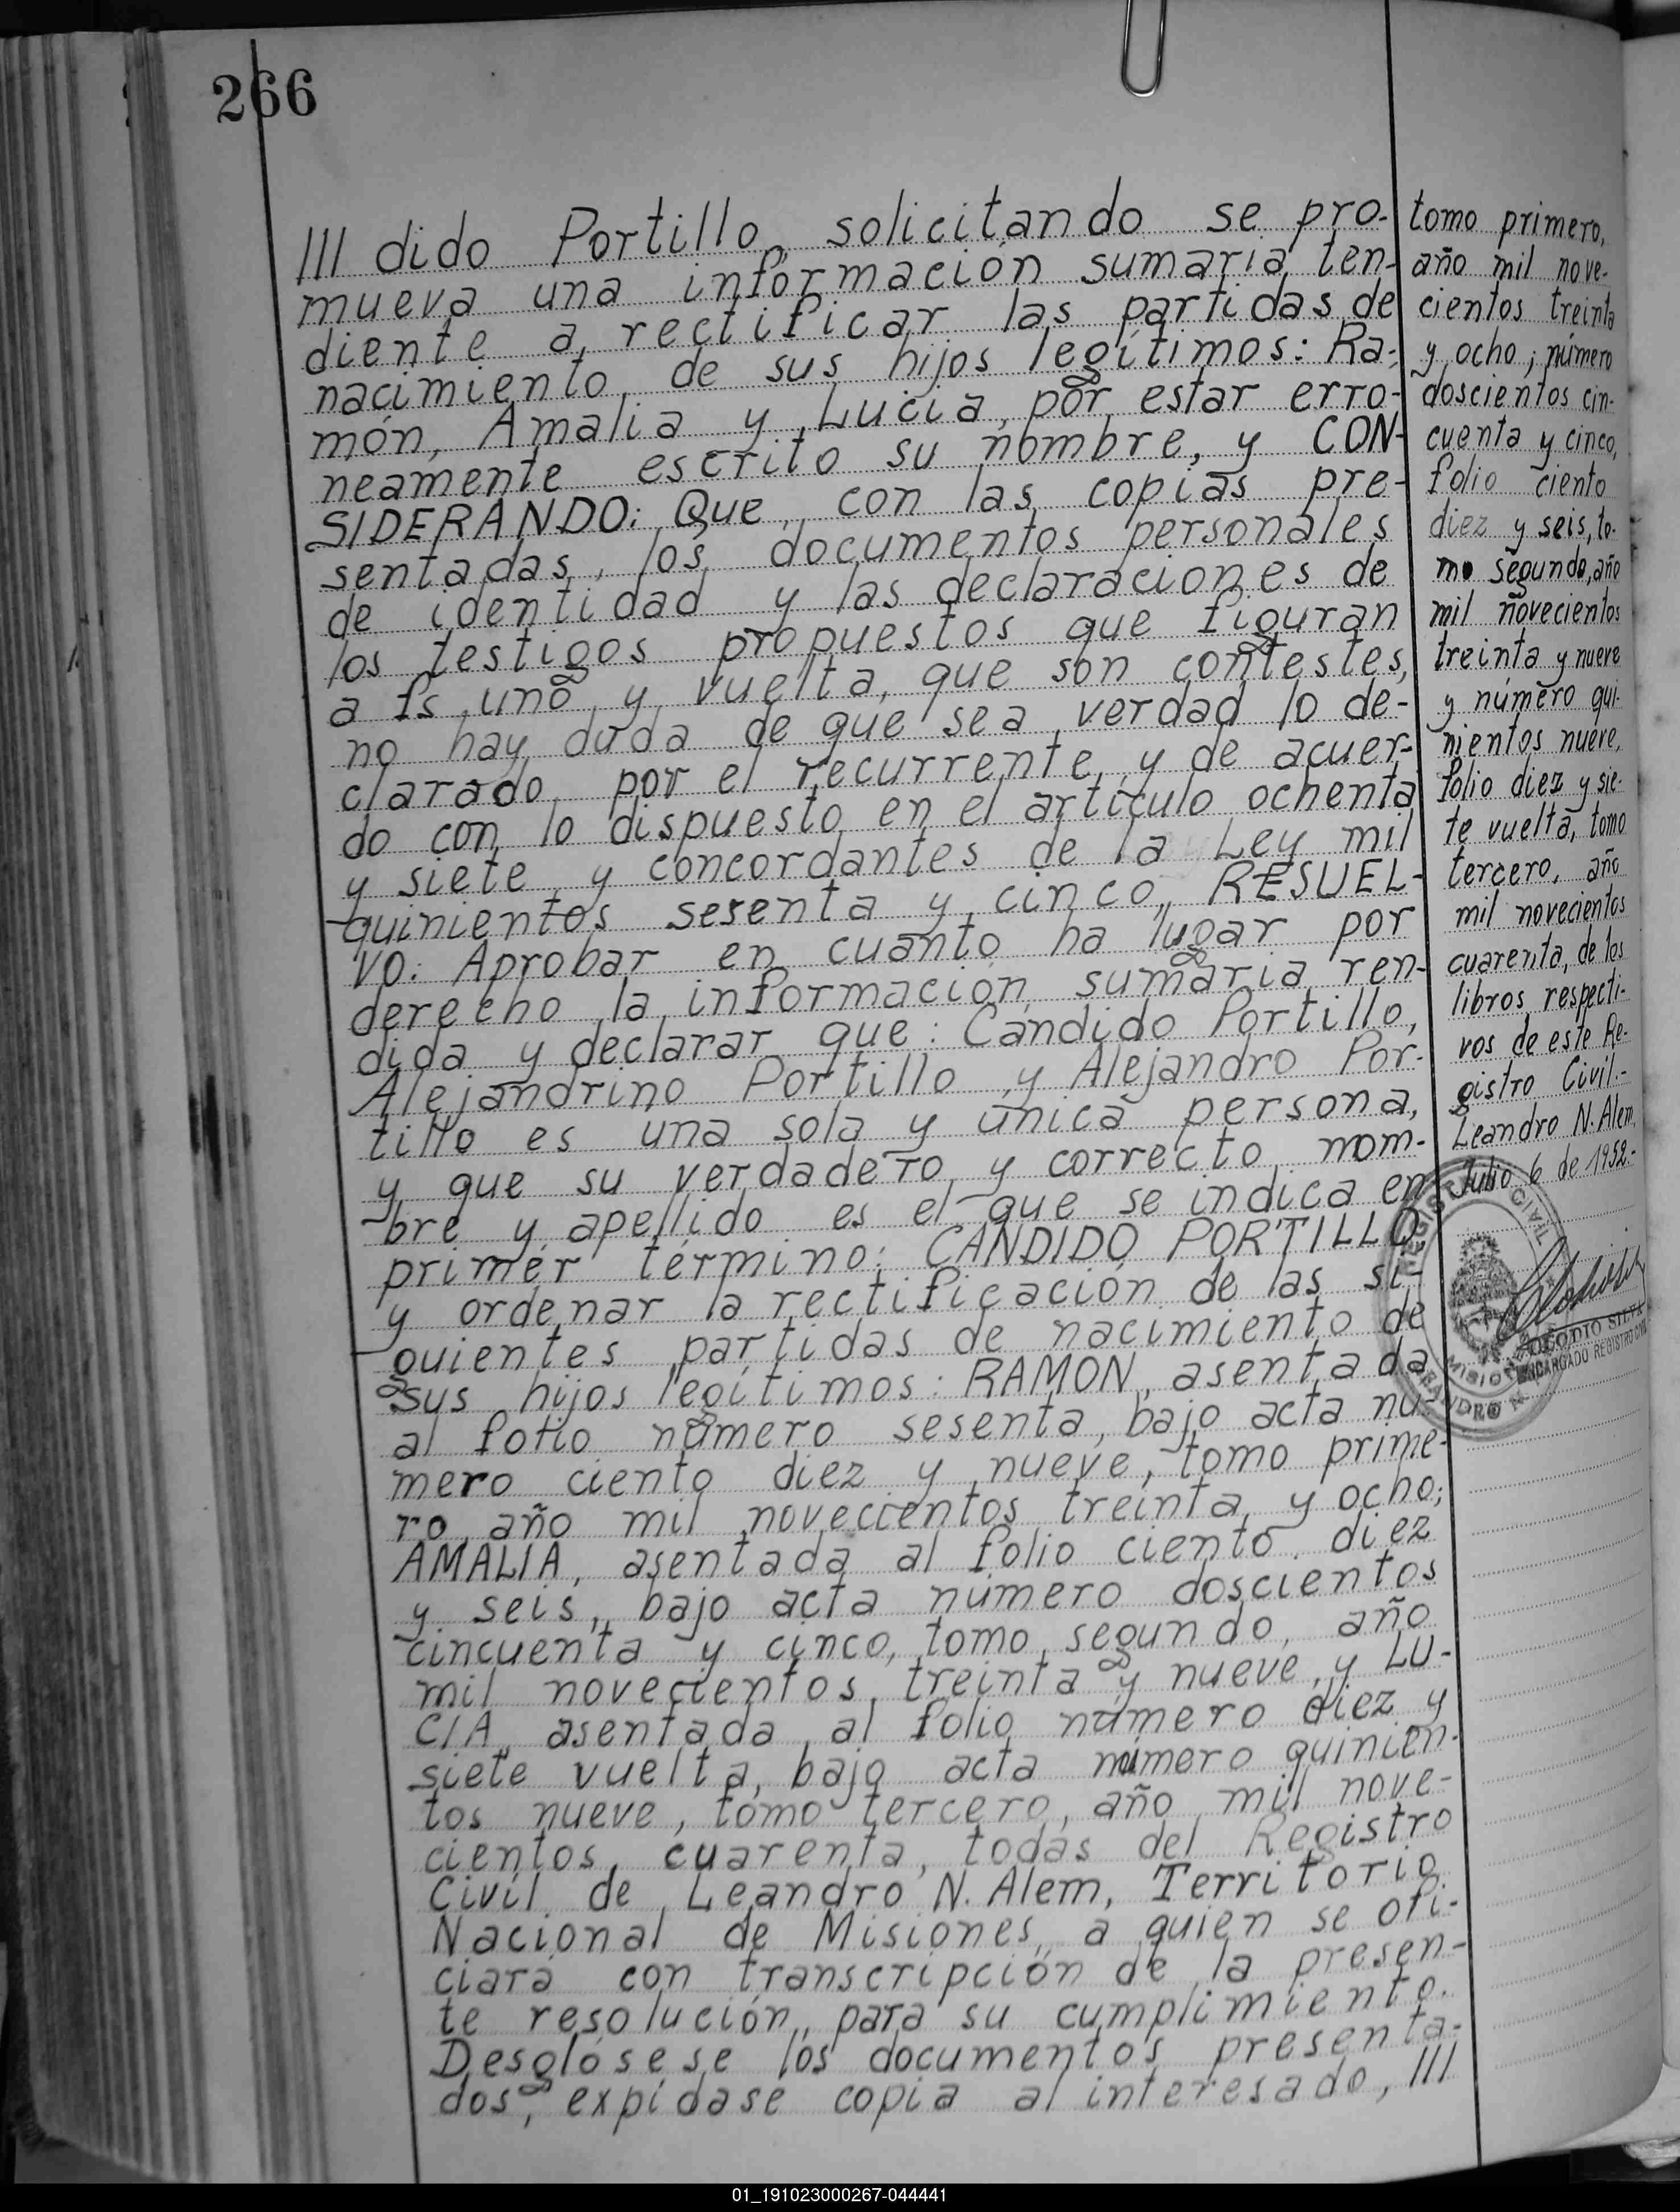 266
/// dido Portillo, solicitando se pro-
mueva una información sumaria ten-
diente a rectificar las partidas de
nacimiento de sus hijos legítimos: Ra-
món, Amalia y Lucía, por estar erro-
neamente escrito su nombre, y CON-
SIDERANDO: Que, con las copias pre-
sentadas, los documentos personales
de identidad y las declaraciones de
los testigos propuestos que figuran
a fs. uno y vuelta, que son contestes,
no hay duda de que sea verdad lo de-
clarado por el recurrente, y de acuer-
do con lo dispuesto en el artículo ochenta
y siete y concordantes de la Ley mil
quinientos sesenta y cinco, RESUEL-
VO: Aprobar en cuanto ha lugar por
derecho la información sumaria ren-
dida y declarar que: Cándido Portillo,
Alejandrino Portillo y Alejandro Por-
tillo es una sola y única persona,
y que su verdadero y correcto nom-
bre y apellido es el que se indica en
primer término: CANDIDO PORTILLO,
y ordenar la rectificación de las si-
guientes partidas de nacimiento de
sus hijos legítimos: RAMON, asentada
al folio número sesenta, bajo acta nú-
mero ciento diez y nueve, tomo prime-
ro, año mil novecientos treinta y ocho;
AMALIA, asentada al folio ciento diez
y seis, bajo acta número doscientos
cincuenta y cinco, tomo segundo, año
mil novecientos treinta y nueve, y LU-
CIA, asentada al folio número diez y
siete vuelta, bajo acta número quinien-
tos nueve, tomo tercero, año mil nove-
cientos cuarenta, todas del Registro
Civil de Leandro N. Alem, Territorio
Nacional de Misiones, a quien se ofi-
ciará con transcripción de la presen-
te resolución, para su cumplimiento.
Desglósese los documentos presenta-
dos, expídase copia al interesado, ///
tomo primero,
año mil nove-
cientos treinta
y ocho; número
doscientos cin-
cuenta y cinco,
folio ciento
diez y seis, to-
mo segundo, año
mil novecientos
treinta y nueve
y número qui-
nientos nueve,
folio diez y sie-
te vuelta, tomo
tercero, año
mil novecientos
cuarenta, de los
libros respecti-
vos de este Re-
gistro Civil.-
Leandro N. Alem,
Julio 6 de 1952.-
REGISTRO CIVIL
SILVA
ENCARGADO REGISTRO CIVIL
MISIONES
LEANDRO N.
01_191023000267-044441